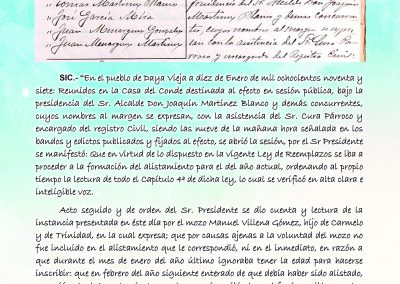 " Tomás Martínez Blanco
" José García Mira
" Juan Menarguez Gonzalez
" Juan Menarguez Martinez
presidencia del Sr. Alcalde Don Joaquin
Martinez Blanco y demas concurren
tes, cuyos nombres al margen se expre
san con la asistencia del Sr. Cura Pár
roco y encargado del Registro Civil
SIC.- "En el pueblo de Daya Vieja a diez de Enero de mil ochocientos noventa y
siete: Reunidos en la Casa del Conde destinada al efecto en sesión pública, bajo
la presidencia del Sr. Alcalde Don Joaquín Martínez Blanco y demás concurrentes,
cuyos nombres al margen se expresan, con la asistencia del Sr. Cura Párroco y
encargado del registro Civil, siendo las nueve de la mañana hora señalada en los
bandos y edictos publicados y fijados al efecto, se abrió la sesión, por el Sr Presidente
se manifestó: Que en virtud de lo dispuesto en la vigente Ley de Reemplazos se iba a
proceder a la formación del alistamiento para el del año actual, ordenando al propio
tiempo la lectura de todo el Capítulo 4º de dicha ley, lo cual se verificó en alta clara e
inteligible voz.
Acto seguido y de orden del Sr. Presidente se dio cuenta y lectura de la
instancia presentada en éste día por el mozo Manuel Villena Gómez, hijo de Carmelo
y de Trinidad, en la cual expresa; que por causas ajenas a la voluntad del mozo no
fue incluido en el alistamiento que le correspondió, ni en el inmediato, en razón a
que durante el mes de enero del año último ignoraba tener la edad para hacerse
inscribir: que en febrero del año siguiente enterado de que debía haber sido alistado,